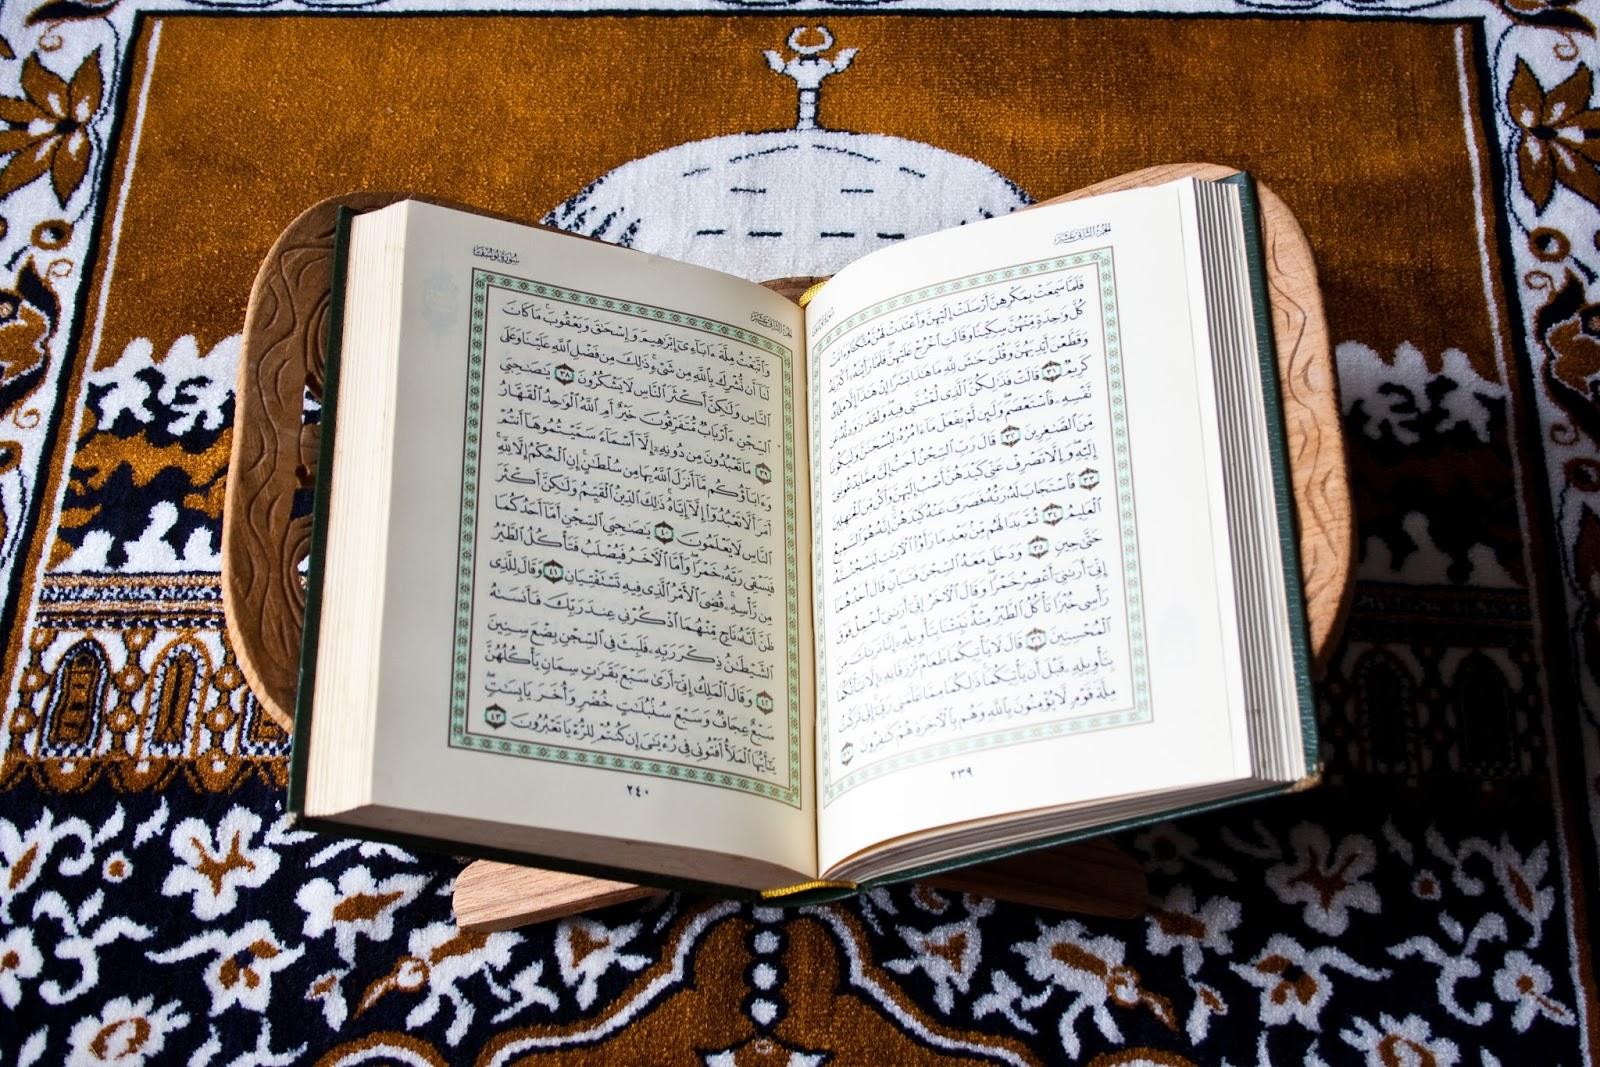 الجزء الثاني عشر
فَلَمَّا سَمِعَتْ بِمَكْرِهِنَّ أَرْسَلَتْ إِلَيْهِنَّ وَأَعْتَدَتْ لَهُنَّ مُتَّكَـًٔا وَءَاتَتْ
كُلَّ وَٰحِدَةٍ مِّنْهُنَّ سِكِّينًا وَقَالَتِ ٱخْرُجْ عَلَيْهِنَّ فَلَمَّا رَأَيْنَهُۥٓ أَكْبَرْنَهُۥ
وَقَطَّعْنَ أَيْدِيَهُنَّ وَقُلْنَ حَٰشَ لِلَّهِ مَا هَٰذَا بَشَرًا إِنْ هَٰذَآ إِلَّا مَلَكٌ
كَرِيمٌ ٣١ قَالَتْ فَذَٰلِكُنَّ ٱلَّذِى لُمْتُنَّنِى فِيهِ وَلَقَدْ رَٰوَدتُّهُۥ عَن
نَّفْسِهِۦ فَٱسْتَعْصَمَ وَلَئِن لَّمْ يَفْعَلْ مَآ ءَامُرُهُۥ لَيُسْجَنَنَّ وَلَيَكُونًا
مِّنَ ٱلصَّٰغِرِينَ ٣٢ قَالَ رَبِّ ٱلسِّجْنُ أَحَبُّ إِلَىَّ مِمَّا يَدْعُونَنِىٓ
إِلَيْهِ وَإِلَّا تَصْرِفْ عَنِّى كَيْدَهُنَّ أَصْبُ إِلَيْهِنَّ وَأَكُن مِّنَ ٱلْجَٰهِلِينَ
٣٣ فَٱسْتَجَابَ لَهُۥ رَبُّهُۥ فَصَرَفَ عَنْهُ كَيْدَهُنَّ إِنَّهُۥ هُوَ ٱلسَّمِيعُ
ٱلْعَلِيمُ ٣٤ ثُمَّ بَدَا لَهُم مِّنۢ بَعْدِ مَا رَأَوُا۟ ٱلْءَايَٰتِ لَيَسْجُنُنَّهُۥ
حَتَّىٰ حِينٍ ٣٥ وَدَخَلَ مَعَهُ ٱلسِّجْنَ فَتَيَانِ قَالَ أَحَدُهُمَآ
إِنِّىٓ أَرَىٰنِىٓ أَعْصِرُ خَمْرًا وَقَالَ ٱلْءَاخَرُ إِنِّىٓ أَرَىٰنِىٓ أَحْمِلُ فَوْقَ
رَأْسِى خُبْزًا تَأْكُلُ ٱلطَّيْرُ مِنْهُ نَبِّئْنَا بِتَأْوِيلِهِۦٓ إِنَّا نَرَىٰكَ مِنَ
ٱلْمُحْسِنِينَ ٣٦ قَالَ لَا يَأْتِيكُمَا طَعَامٌ تُرْزَقَانِهِۦٓ إِلَّا نَبَّأْتُكُمَا
بِتَأْوِيلِهِۦ قَبْلَ أَن يَأْتِيَكُمَا ذَٰلِكُمَا مِمَّا عَلَّمَنِى رَبِّىٓ إِنِّى تَرَكْتُ
مِلَّةَ قَوْمٍ لَّا يُؤْمِنُونَ بِٱللَّهِ وَهُم بِٱلْءَاخِرَةِ هُمْ كَٰفِرُونَ ٣٧
٢٣٩
سورة يوسف
الجزء الثاني عشر
وَٱتَّبَعْتُ مِلَّةَ ءَابَآءِىٓ إِبْرَٰهِيمَ وَإِسْحَٰقَ وَيَعْقُوبَ مَا كَانَ
لَنَآ أَن نُّشْرِكَ بِٱللَّهِ مِن شَىْءٍ ذَٰلِكَ مِن فَضْلِ ٱللَّهِ عَلَيْنَا وَعَلَى
ٱلنَّاسِ وَلَٰكِنَّ أَكْثَرَ ٱلنَّاسِ لَا يَشْكُرُونَ ٣٨ يَٰصَٰحِبَىِ
ٱلسِّجْنِ ءَأَرْبَابٌ مُّتَفَرِّقُونَ خَيْرٌ أَمِ ٱللَّهُ ٱلْوَٰحِدُ ٱلْقَهَّارُ
٣٩ مَا تَعْبُدُونَ مِن دُونِهِۦٓ إِلَّآ أَسْمَآءً سَمَّيْتُمُوهَآ أَنتُمْ
وَءَابَآؤُكُم مَّآ أَنزَلَ ٱللَّهُ بِهَا مِن سُلْطَٰنٍ إِنِ ٱلْحُكْمُ إِلَّا لِلَّهِ
أَمَرَ أَلَّا تَعْبُدُوٓا۟ إِلَّآ إِيَّاهُ ذَٰلِكَ ٱلدِّينُ ٱلْقَيِّمُ وَلَٰكِنَّ أَكْثَرَ
ٱلنَّاسِ لَا يَعْلَمُونَ ٤٠ يَٰصَٰحِبَىِ ٱلسِّجْنِ أَمَّآ أَحَدُكُمَا
فَيَسْقِى رَبَّهُۥ خَمْرًا وَأَمَّا ٱلْءَاخَرُ فَيُصْلَبُ فَتَأْكُلُ ٱلطَّيْرُ
مِن رَّأْسِهِۦ قُضِىَ ٱلْأَمْرُ ٱلَّذِى فِيهِ تَسْتَفْتِيَانِ ٤١ وَقَالَ لِلَّذِى
ظَنَّ أَنَّهُۥ نَاجٍ مِّنْهُمَا ٱذْكُرْنِى عِندَ رَبِّكَ فَأَنسَىٰهُ
ٱلشَّيْطَٰنُ ذِكْرَ رَبِّهِۦ فَلَبِثَ فِى ٱلسِّجْنِ بِضْعَ سِنِينَ
٤٢ وَقَالَ ٱلْمَلِكُ إِنِّىٓ أَرَىٰ سَبْعَ بَقَرَٰتٍ سِمَانٍ يَأْكُلُهُنَّ
سَبْعٌ عِجَافٌ وَسَبْعَ سُنۢبُلَٰتٍ خُضْرٍ وَأُخَرَ يَابِسَٰتٍ
يَٰٓأَيُّهَا ٱلْمَلَأُ أَفْتُونِى فِى رُءْيَٰىَ إِن كُنتُمْ لِلرُّءْيَا تَعْبُرُونَ ٤٣
٢٤٠